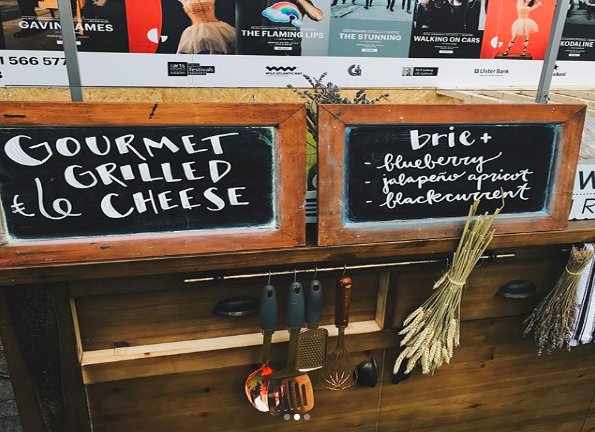 GAVIN JAMES
THE FLAMING LIPS
THE STUNNING
WALKING ON CARS
KODALINE
1 566 577
arts
festivals
WILD ATLANTIC WAY
G
Ulster Bank
GOURMET
GRILLED
€6 CHEESE
brie +
- blueberry
- jalapeño apricot
- blackcurrent